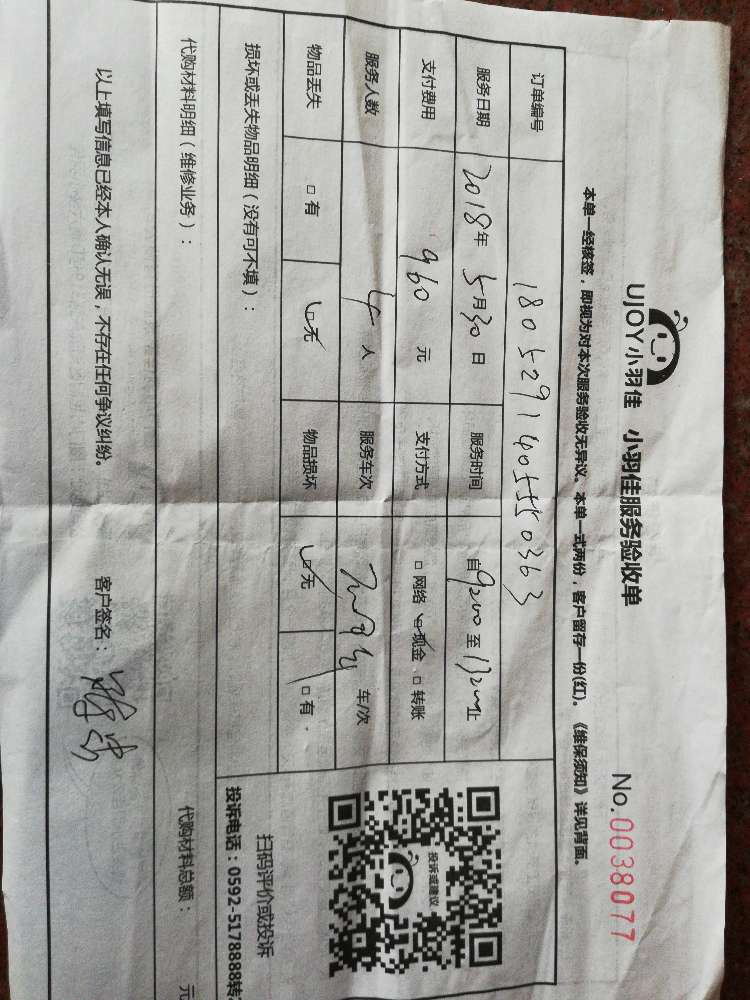 UJOY小羽佳 小羽佳服务验收单
No.0038077
本单一经核签，即视为对本次服务验收无异议。本单一式两份，客户留存一份(红)。《维保须知》详见背面。
订单编号 1805291405550363
服务日期 2018年5月30日 服务时间 自9:00至13:00止
支付费用 960元 支付方式 □网络 ☑现金 □转账
服务人数 4人 服务车次 车/次
物品丢失 □有 ☑无 物品损坏 ☑无 □有
损坏或丢失物品明细（没有可不填）：
代购材料明细（维修业务）：
代购材料总额： 元
以上填写信息已经本人确认无误，不存在任何争议纠纷。
客户签名：
投诉或建议
扫码评价或投诉
投诉电话：0592-5178888转